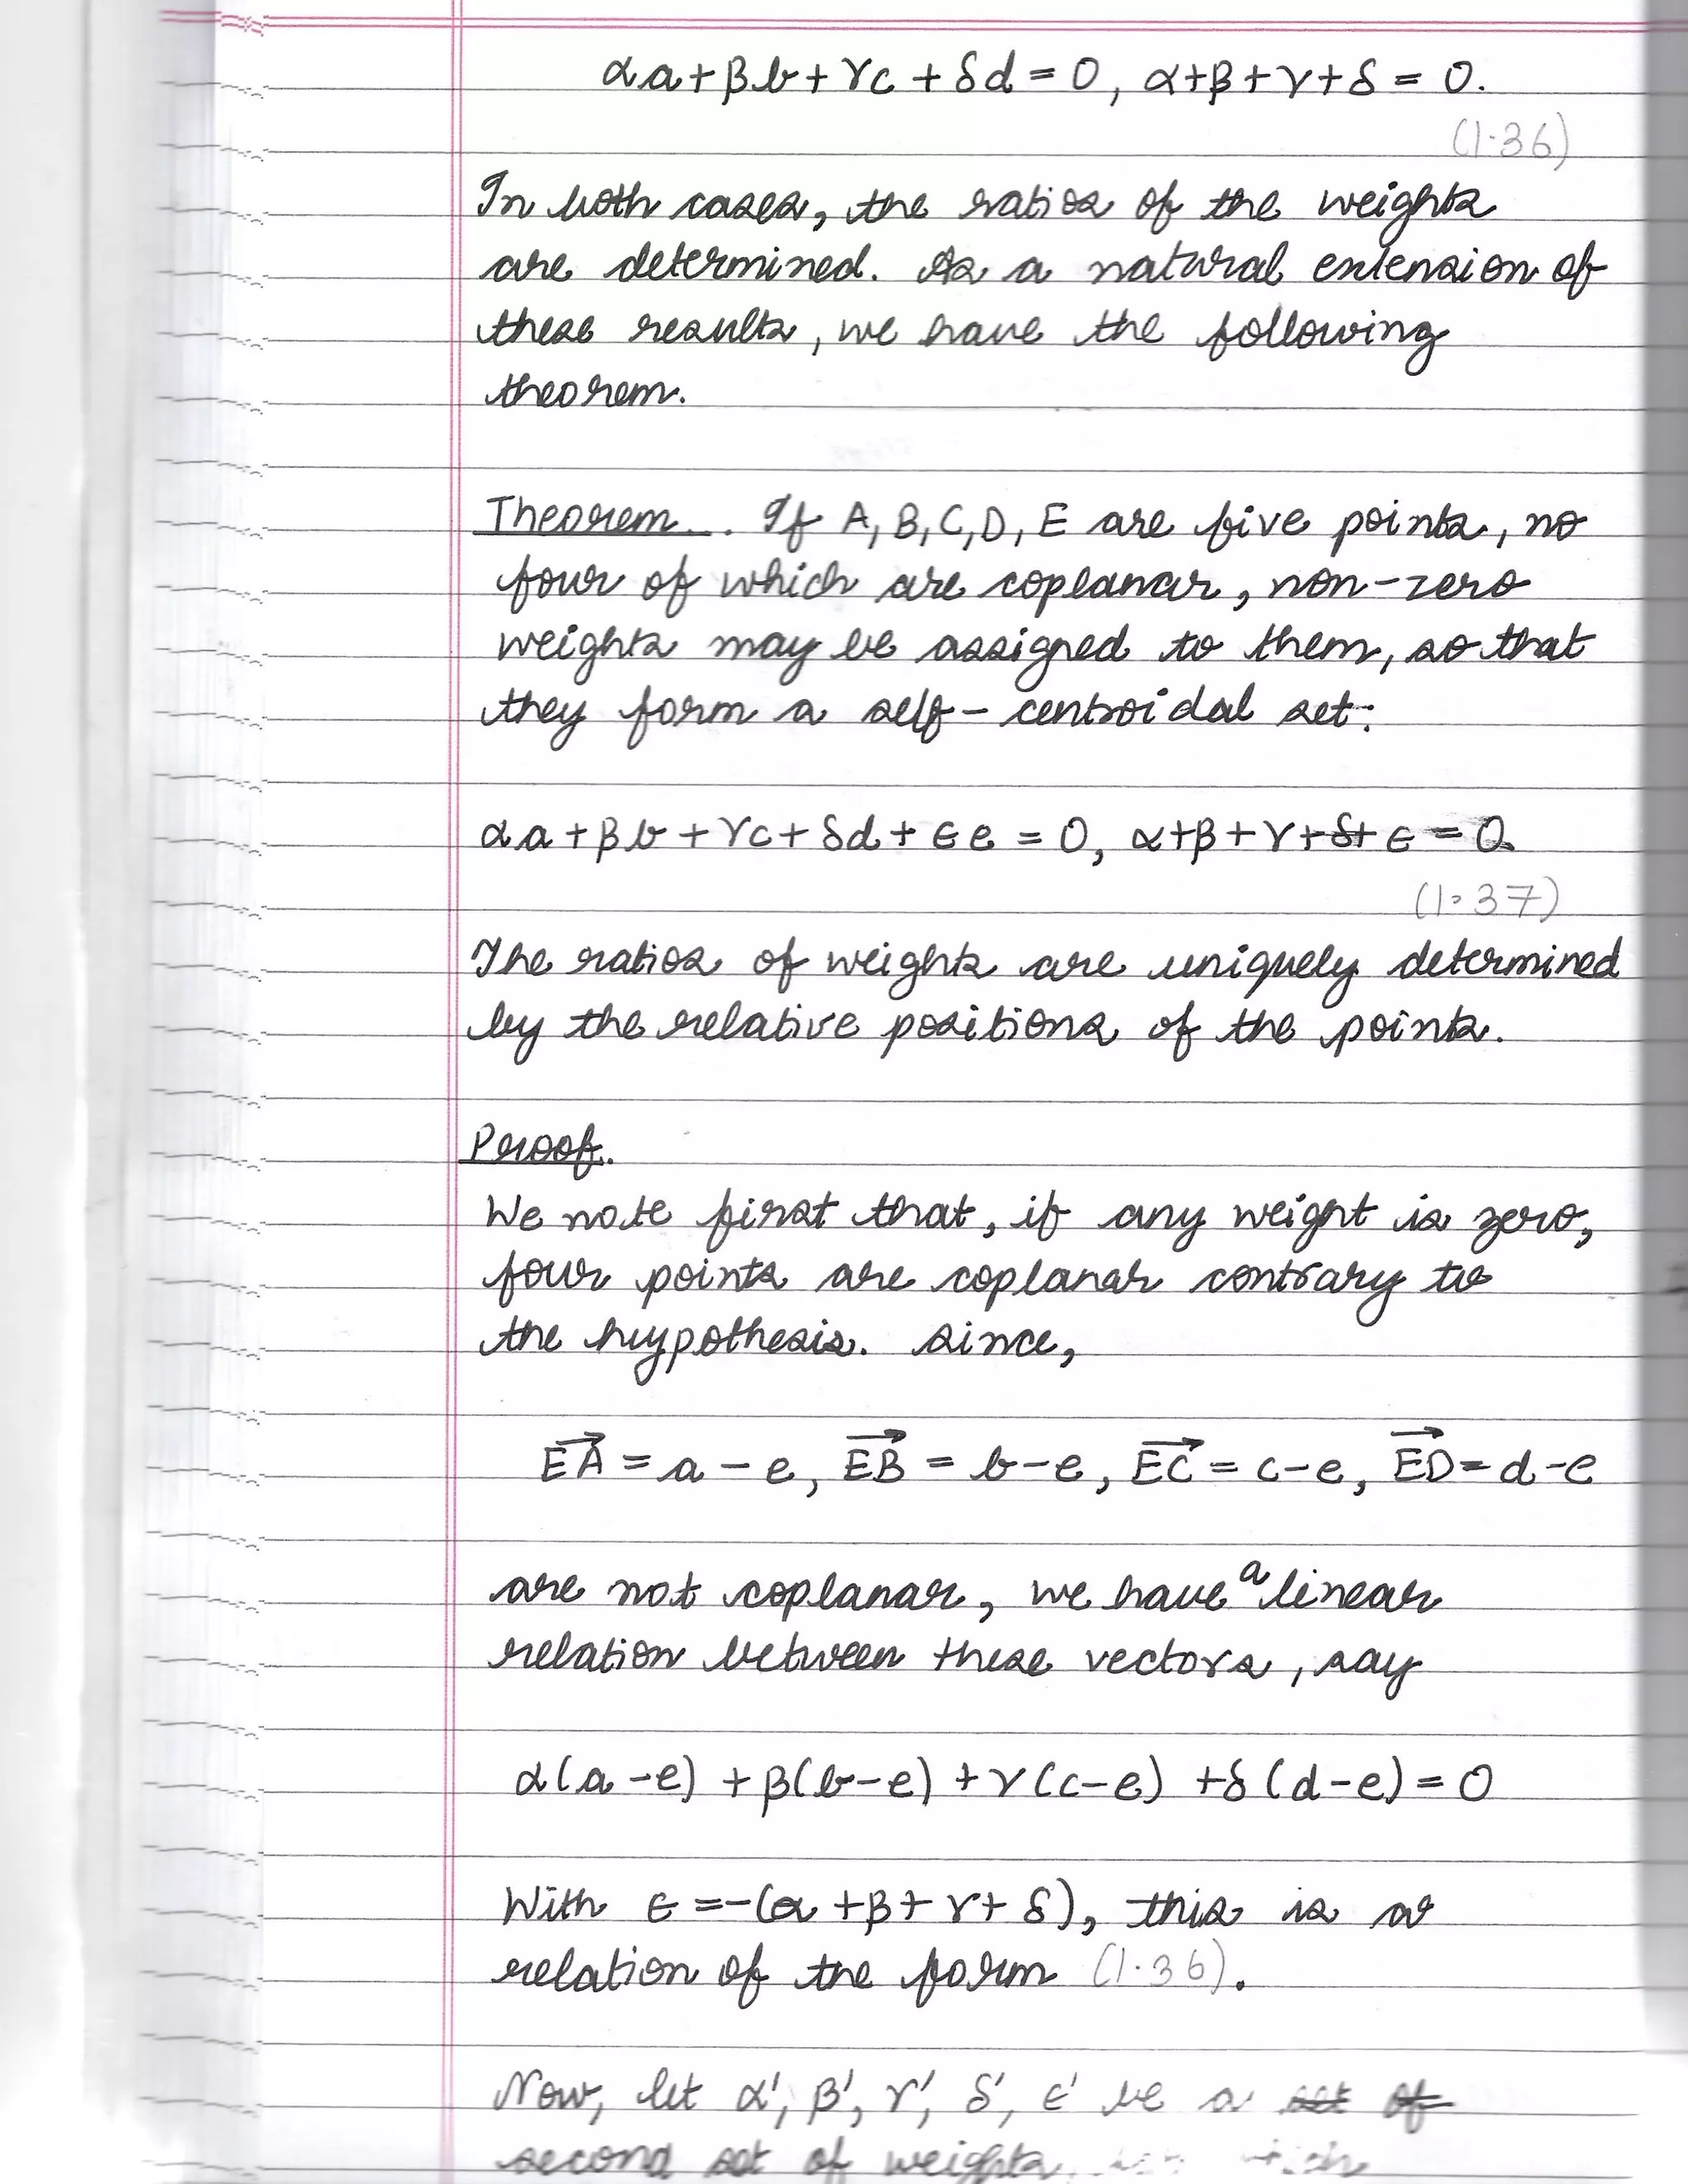 αa + βb + γc + δd = 0, α+β+γ+δ = 0.
(1.36)
In both cases, the ratios of the weights
are determined. As a natural extension of
these results, we have the following
theorem.
Theorem. . If A, B, C, D, E are five points, no
four of which are coplanar, non-zero
weights may be assigned to them, so that
they form a self-centroidal set:
αa + βb + γc + δd + ϵe = 0, α+β+γ+δ+ϵ = 0.
(1.37)
The ratios of weights are uniquely determined
by the relative positions of the points.
Proof.
We note first that, if any weight is zero,
four points are coplanar contrary to
the hypothesis. Since,
EA→ = a - e, EB→ = b - e, EC→ = c - e, ED→ = d - e
are not coplanar, we have a linear
relation between these vectors, say
α(a - e) + β(b - e) + γ(c - e) + δ(d - e) = 0
With ϵ = -(α + β + γ + δ), this is a
relation of the form (1.36).
Now, let α', β', γ', δ', ϵ' be a set of
second set of weights